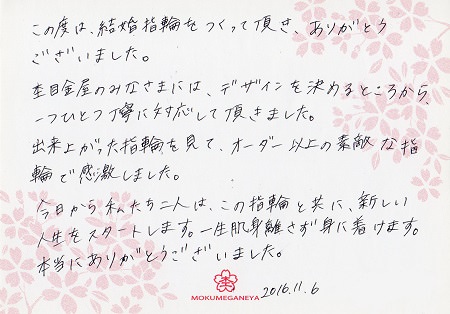 この度は、結婚指輪をつくって頂き、ありがとう
ございました。
杢目金屋のみなさまには、デザインを決めるところから、
一つひとつ丁寧に対応して頂きました。
出来上がった指輪を見て、オーダー以上の素敵な指
輪で感激しました。
今日から私たち二人は、この指輪と共に、新しい
人生をスタートします。一生肌身離さず身に着けます。
本当にありがとうございました。
MOKUMEGANEYA
2016.11.6